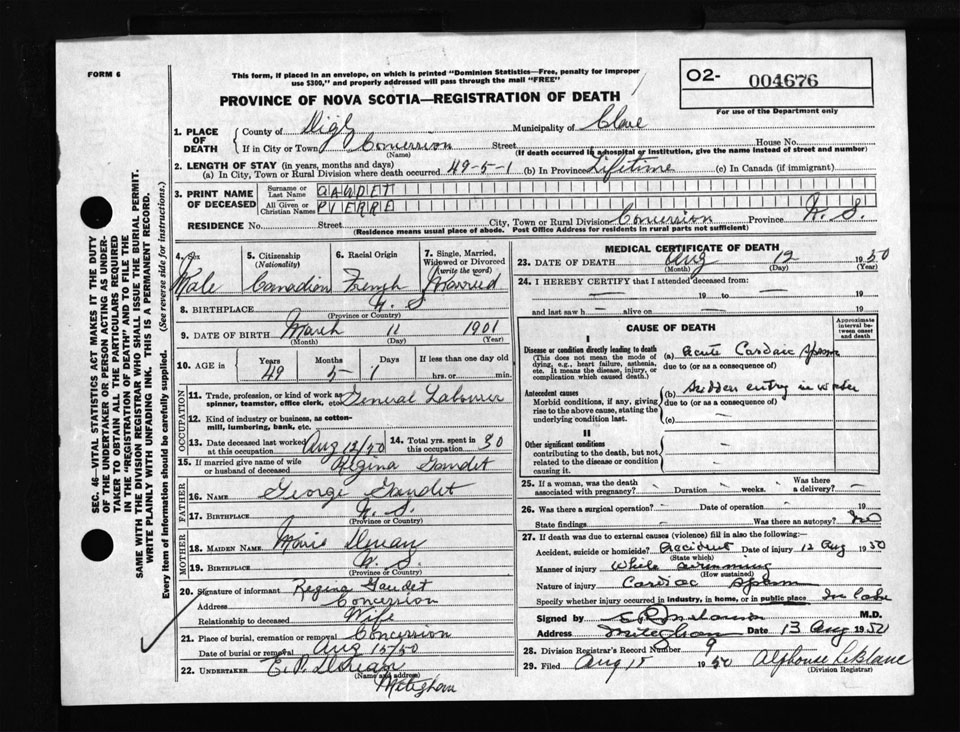 FORM 6
This form, if placed in an envelope, on which is printed "Dominion Statistics—Free, penalty for improper
use $300," and properly addressed will pass through the mail "FREE"
O2- 004676
For use of the Department only
PROVINCE OF NOVA SCOTIA—REGISTRATION OF DEATH
1. PLACE OF DEATH
County of Digby Municipality of Clare
If in City or Town Concession Street House No.
(Name) (If death occurred in a hospital or institution, give the name instead of street and number)
2. LENGTH OF STAY (in years, months and days)
(a) In City, Town or Rural Division where death occurred 49-5-1 (b) In Province Lifetime (c) In Canada (if immigrant)
3. PRINT NAME OF DECEASED
Surname or Last Name GAUDET
All Given or Christian Names PIERRE
RESIDENCE No. Street City, Town or Rural Division Concession Province N. S.
(Residence means usual place of abode. Post Office Address for residents in rural parts not sufficient)
4. Sex Male
5. Citizenship (Nationality) Canadian
6. Racial Origin French
7. Single, Married, Widowed or Divorced (write the word) Married
8. BIRTHPLACE N. S
(Province or Country)
9. DATE OF BIRTH March 11 1901
(Month) (Day) (Year)
10. AGE in Years 49 Months 5 Days If less than one day old hrs. or min.
OCCUPATION
11. Trade, profession, or kind of work as spinner, teamster, office clerk, etc. General Labourer
12. Kind of industry or business, as cotton-mill, lumbering, bank, etc.
13. Date deceased last worked at this occupation Aug 12/50
14. Total yrs. spent in this occupation 30
15. If married give name of wife or husband of deceased Regina Gaudet
FATHER
16. NAME George Gaudet
17. BIRTHPLACE N. S.
(Province or Country)
MOTHER
18. MAIDEN NAME
19. BIRTHPLACE N. S.
(Province or Country)
20. Signature of informant Regina Gaudet
Address Concession
Relationship to deceased Wife
21. Place of burial, cremation or removal Concession
Date of burial or removal Aug 15/50
22. UNDERTAKER E. P.
(Name and address)
Meteghan
MEDICAL CERTIFICATE OF DEATH
23. DATE OF DEATH Aug 12 1950
(Month) (Day) (Year)
24. I HEREBY CERTIFY that I attended deceased from:
— 19 to — 19
and last saw h — alive on — 19
CAUSE OF DEATH
Approximate interval between onset and death
I
Disease or condition directly leading to death
(This does not mean the mode of dying, e.g., heart failure, asthenia, etc. It means the disease, injury, or complication which caused death.)
(a) Acute Cardiac Spasm
due to (or as a consequence of)
Antecedent causes
Morbid conditions, if any, giving rise to the above cause, stating the underlying condition last.
(b) Sudden entry in water
due to (or as a consequence of)
(c)
II
Other significant conditions
contributing to the death, but not related to the disease or condition causing it.
25. If a woman, was the death associated with pregnancy? - Duration - weeks. Was there a delivery? —
26. Was there a surgical operation? - Date of operation - 19
State findings Was there an autopsy? No
27. If death was due to external causes (violence) fill in also the following:—
Accident, suicide or homicide? Accident Date of injury 12 Aug 1950
(State which)
Manner of injury While swimming
(How sustained)
Nature of injury Cardiac Spasm
Specify whether injury occurred in industry, in home, or in public place In lake
Signed by M.D.
Address Meteghan Date 13 Aug 1950
28. Division Registrar's Record Number 9
29. Filed Aug 15 1950 Alphonse LeBlanc
(Division Registrar)
SEC. 46—VITAL STATISTICS ACT MAKES IT THE DUTY
OF THE UNDERTAKER OR PERSON ACTING AS UNDER-
TAKER TO OBTAIN ALL THE PARTICULARS REQUIRED
IN THE "REGISTRATION OF DEATH" AND TO FILE THE
SAME WITH THE DIVISION REGISTRAR WHO SHALL ISSUE THE BURIAL PERMIT.
WRITE PLAINLY WITH UNFADING INK. THIS IS A PERMANENT RECORD.
Every item of information should be carefully supplied. (See reverse side for instructions.)